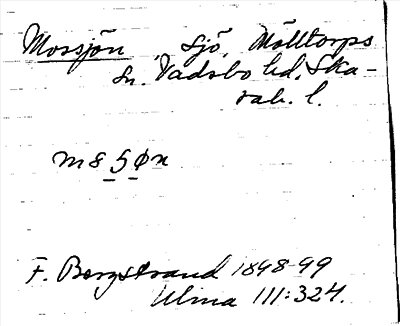 Mossjön, sjö, Mölltorps
sn. Vadsbo hd. Ska-
rab. l.
F. Bergstrand 1898-99
Ulma 111:324.